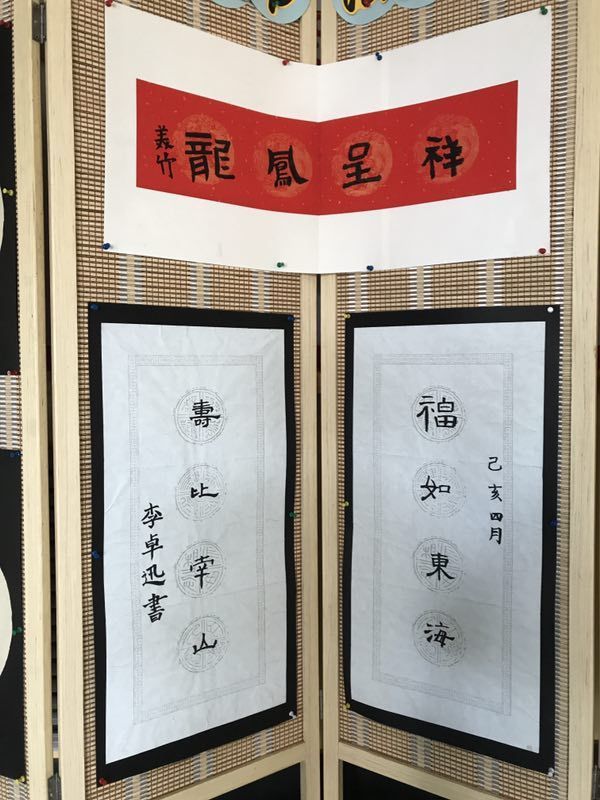 龍鳳呈祥
竹
己亥四月
福如東海
壽比南山
李卓迅書